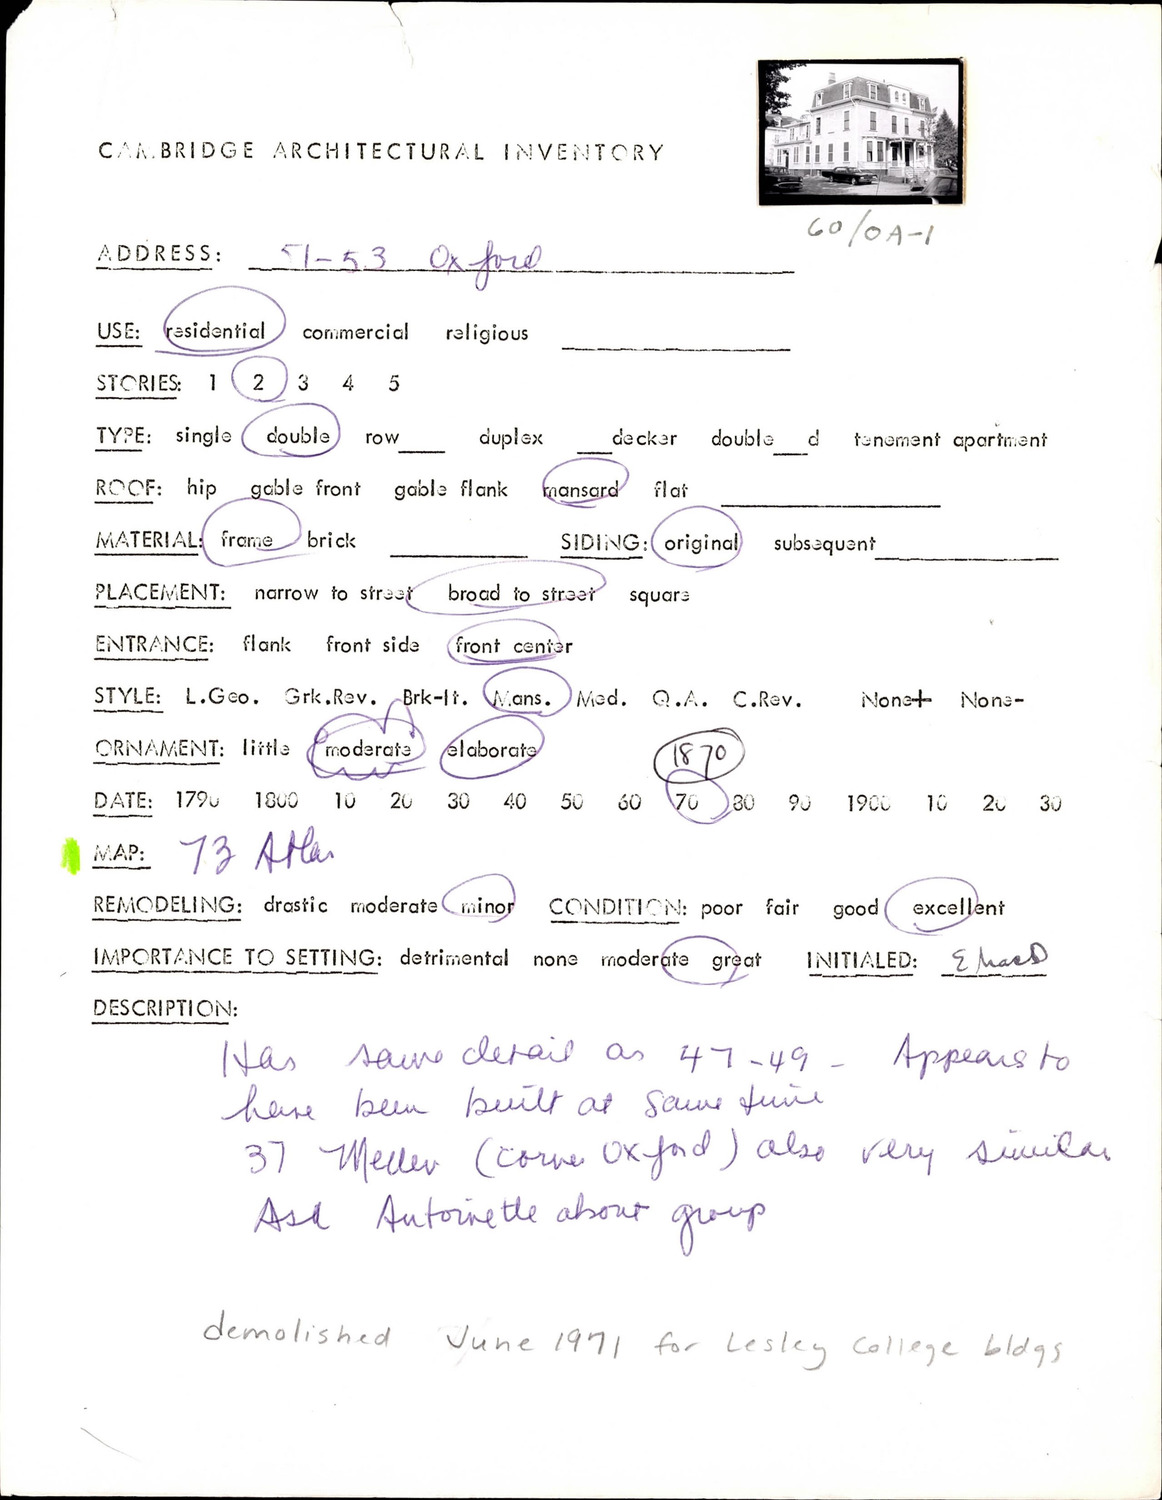 CAMBRIDGE ARCHITECTURAL INVENTORY
60/OA-1
ADDRESS: 51-53 Oxford
USE: residential commercial religious
STORIES: 1 2 3 4 5
TYPE: single double row___ duplex ___decker double___d tenement apartment
ROOF: hip gable front gable flank mansard flat
MATERIAL: frame brick SIDING: original subsequent
PLACEMENT: narrow to street broad to street square
ENTRANCE: flank front side front center
STYLE: L.Geo. Grk.Rev. Brk-It. Mans. Med. Q.A. C.Rev. None+ None-
ORNAMENT: little moderate elaborate 1870
DATE: 1790 1800 10 20 30 40 50 60 70 80 90 1900 10 20 30
MAP: 73 Atlas
REMODELING: drastic moderate minor CONDITION: poor fair good excellent
IMPORTANCE TO SETTING: detrimental none moderate great INITIALED: E MacD
DESCRIPTION:
Has same detail as 47-49 - Appears to
have been built at same time
37 Mellen (corner Oxford) also very similar
Ask Antoinette about group
demolished June 1971 for Lesley College bldgs